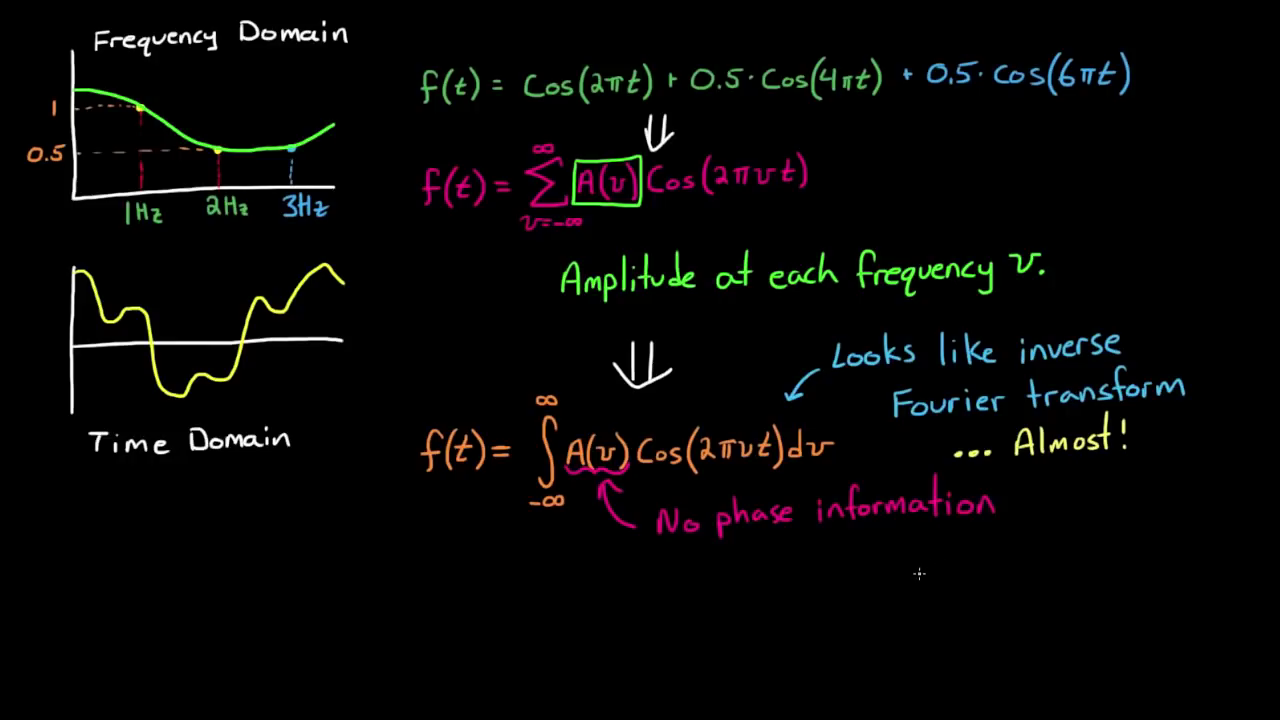 Frequency Domain
1
0.5
1Hz 2Hz 3Hz
Time Domain
f(t) = Cos(2πt) + 0.5·Cos(4πt) + 0.5·cos(6πt)
⇓
f(t) = ∞∑v=-∞ A(v) Cos(2πvt)
Amplitude at each frequency v.
⇓
Looks like inverse
Fourier transform
... Almost!
f(t) = ∞∫-∞ A(v) Cos(2πvt)dv
No phase information